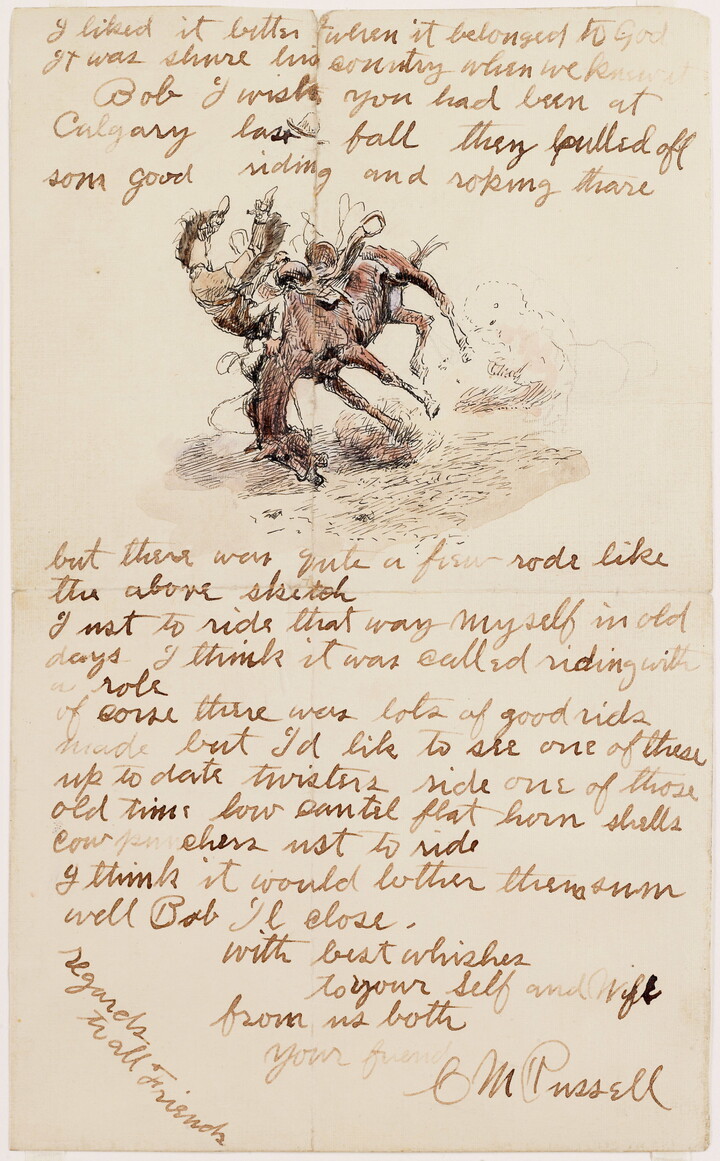 I liked it better when it belonged to God
It was shure his country when we knew it
Bob I wish you had been at
Calgary last fall they pulled off
som good riding and roking thare
but there was quite a fiew rode like
the above sketch
I ust to ride that way myself in old
days I think it was called riding with
a role
of corse there was lots of good rids
made but I'd lik to see one of these
up to date twisters ride one of those
old time low cantel flat horn shells
cow punchers ust to ride
I think it would bother them sum
well Bob I'l close.
with best whishes
to your self and Wife
from us both
your friend
C M Russell
regards
to all Friends